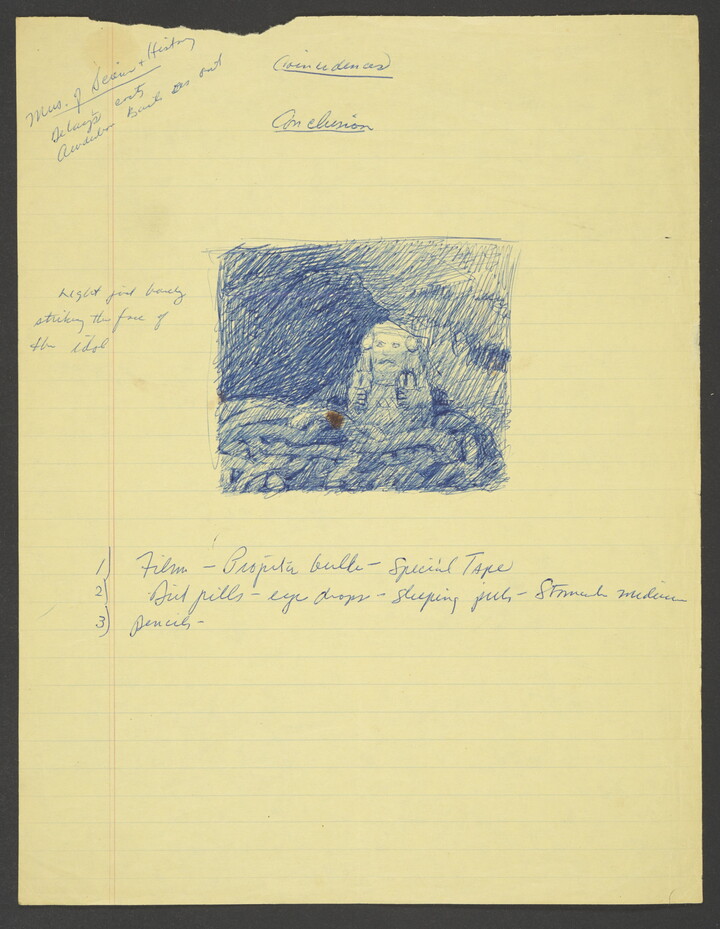 Mus. of Scien + History
Delays
Audubon Bank
Coincidences
Conclusion
Light just barely
striking the face of
the idol
1) Film - Projector bulb - Special Tape
2) Diet pills - eye drops - sleeping pills - Stomach medicine
3) pencils -